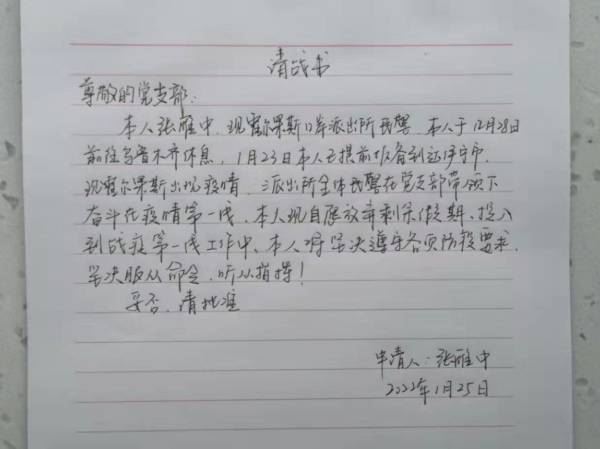 请战书
尊敬的党支部:
本人张雁中,现霍尔果斯口岸派出所民警,本人于12月28日
前往乌鲁木齐休息,1月23日本人已提前报备到达伊宁市,
现霍尔果斯出现疫情,派出所全体民警在党支部带领下
奋斗在疫情第一线,本人现自愿放弃剩余假期,投入
到战疫第一线工作中,本人将坚决遵守各项防疫要求,
坚决服从命令,听从指挥!
妥否,请批准
申请人:张雁中
2022年1月25日